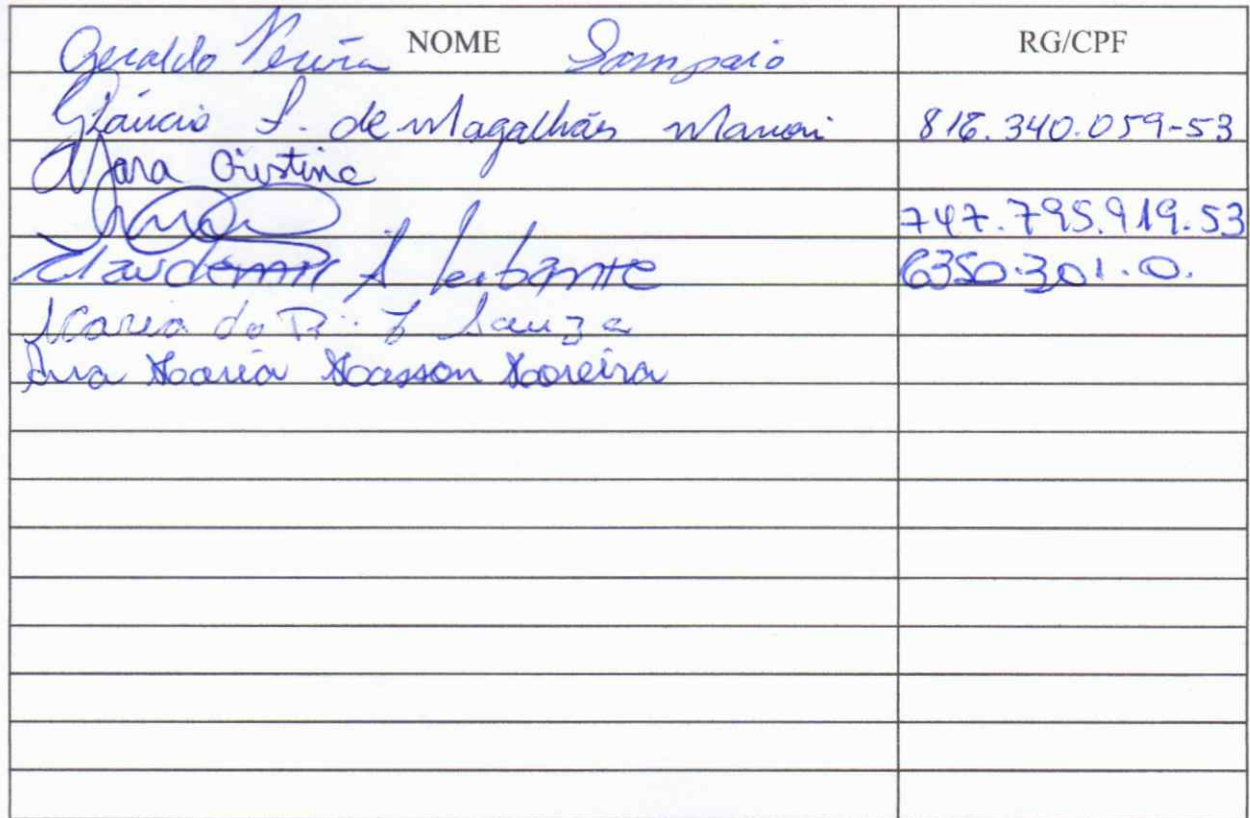 NOME RG/CPF
Geraldo Pereira Sampaio
Gláucio S. de Magalhães 816.340.059-53
Mara Cristina
747.795.919.53
Claudemir A 6350.301.0.
Maria do R. Souza
Ana Maria Masson Moreira